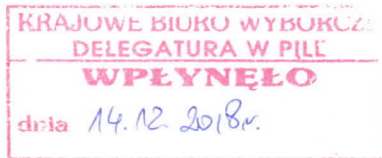 KRAJOWE BIURO WYBORCZ
DELEGATURA W PILE
WPŁYNĘŁO
dnia 14.12.2018r.